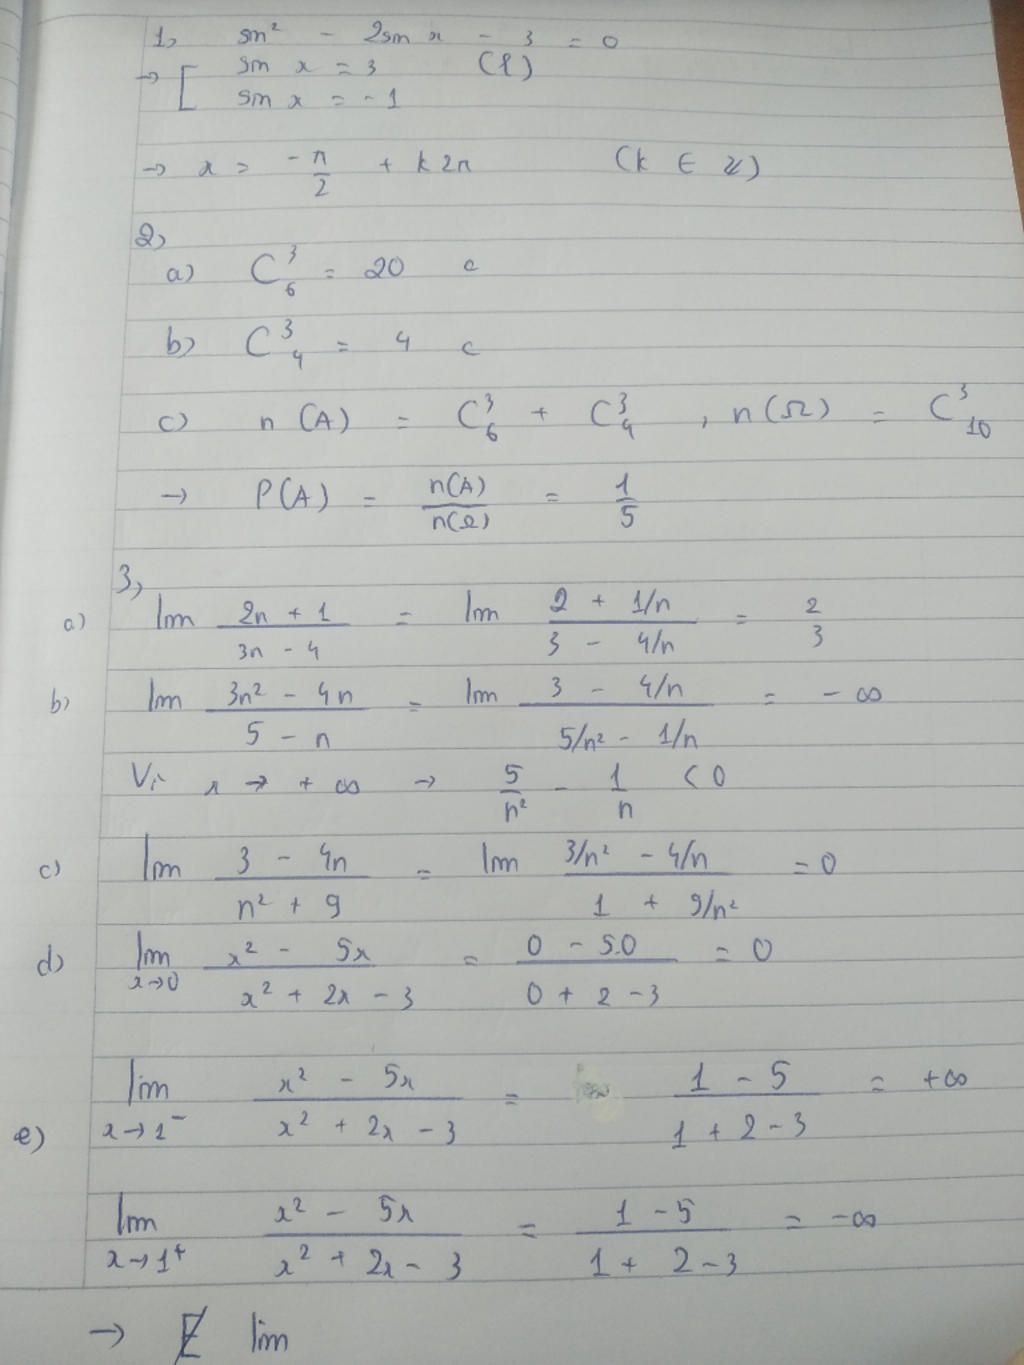 1, sin² - 2sin x - 3 = 0
→ [ sin x = 3 (l)
sin x = -1
→ x = -π/2 + k2π (k ∈ Z)
2,
a) C³₆ = 20 c
b) C³₄ = 4 c
c) n(A) = C³₆ + C³₄ , n(Ω) = C³₁₀
→ P(A) = n(A)/n(Ω) = 1/5
3,
a) lim (2n + 1)/(3n - 4) = lim (2 + 1/n)/(3 - 4/n) = 2/3
b) lim (3n² - 4n)/(5 - n) = lim (3 - 4/n)/(5/n² - 1/n) = -∞
Vì x → +∞ → 5/n² - 1/n < 0
c) lim (3 - 4n)/(n² + 9) = lim (3/n² - 4/n)/(1 + 9/n²) = 0
d) lim x→0 (x² - 5x)/(x² + 2x - 3) = (0 - 5.0)/(0 + 2 - 3) = 0
e) lim x→1⁻ (x² - 5x)/(x² + 2x - 3) = (1 - 5)/(1 + 2 - 3) = +∞
lim x→1⁺ (x² - 5x)/(x² + 2x - 3) = (1 - 5)/(1 + 2 - 3) = -∞
→ ∄ lim